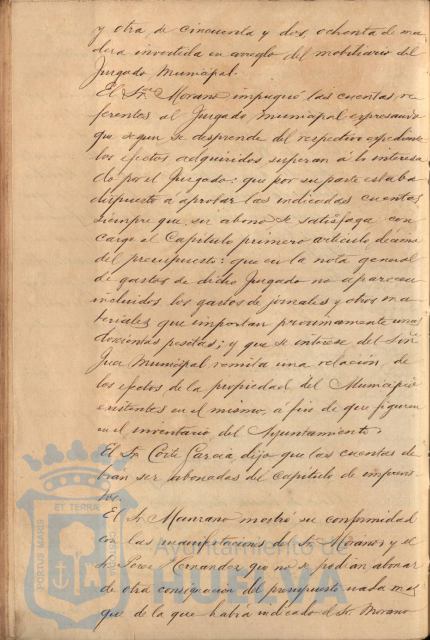 y otra de cincuenta y dos, ochenta de ma-
dera invertida en arreglo del mobiliario del
Juzgado Municipal.
El Sr. Morano impugnó las cuentas re-
ferentes al Juzgado Municipal expresando
que segun se desprende del respectivo expediente
los efectos adquiridos superan á lo interesa
do por el Juzgado: que por su parte estaba
dispuesto a aprobar las indicadas cuentas
siempre que su abono se satisfaga con
cargo al Capitulo primero articulo decimo
del presupuesto: que en la nota general
de gastos de dicho Juzgado no aparecen
incluidos los gastos de jornales y otros ma-
teriales que importan proximamente unas
doscientas pesetas; y que se interese del Señor
Juez Municipal remita una relación de
los efectos de la propiedad del Municipio
existentes en el mismo, a fin de que figuren
en el inventario del Ayuntamiento.
El Sr. Corte Garcia dijo que las cuentas de
bian ser abonadas del capitulo de imprevis-
tos.
El Sr. Manzano mostró su conformidad
con las manifestaciones del Sr. Morano y el
Sr. Perez Hernandez que no se podian abonar
de otra consignacion del presupuesto nada mas
que de la que habia indicado el Sr. Morano
PORTUS MARIS ET TERRAE
Ayuntamiento de
HUELVA